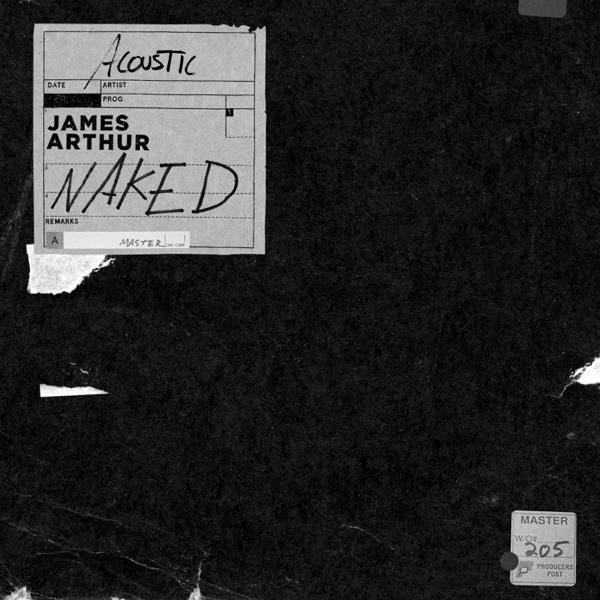 ACOUSTIC
DATE ARTIST
PROG
1
JAMES
ARTHUR
NAKED
REMARKS
A MASTER
MASTER
W/O# 205
P PRODUCERS
POST